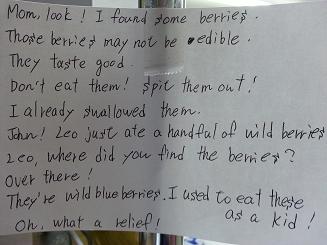 Mom, look! I found some berries.
Those berries may not be edible.
They taste good.
Don't eat them! spit them out!
I already swallowed them.
John! Leo just ate a handful of wild berries
Leo, where did you find the berries?
Over there!
They're wild blueberries. I used to eat these
Oh, what a relief! as a kid!